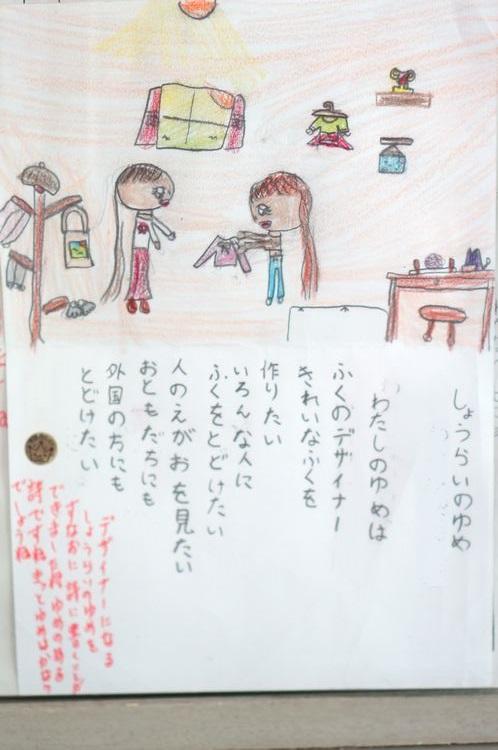 しょうらいのゆめ
わたしのゆめは
ふくのデザイナー
きれいなふくを
作りたい
いろんな人に
ふくをとどけたい
人のえがおを見たい
おともだちにも
外国の方にも
とどけたい
デザイナーになる
しょうらいのゆめを
すなおに詩に書くことが
できましたね ゆめのある
詩ですね きっとゆめはかなう
でしょうね